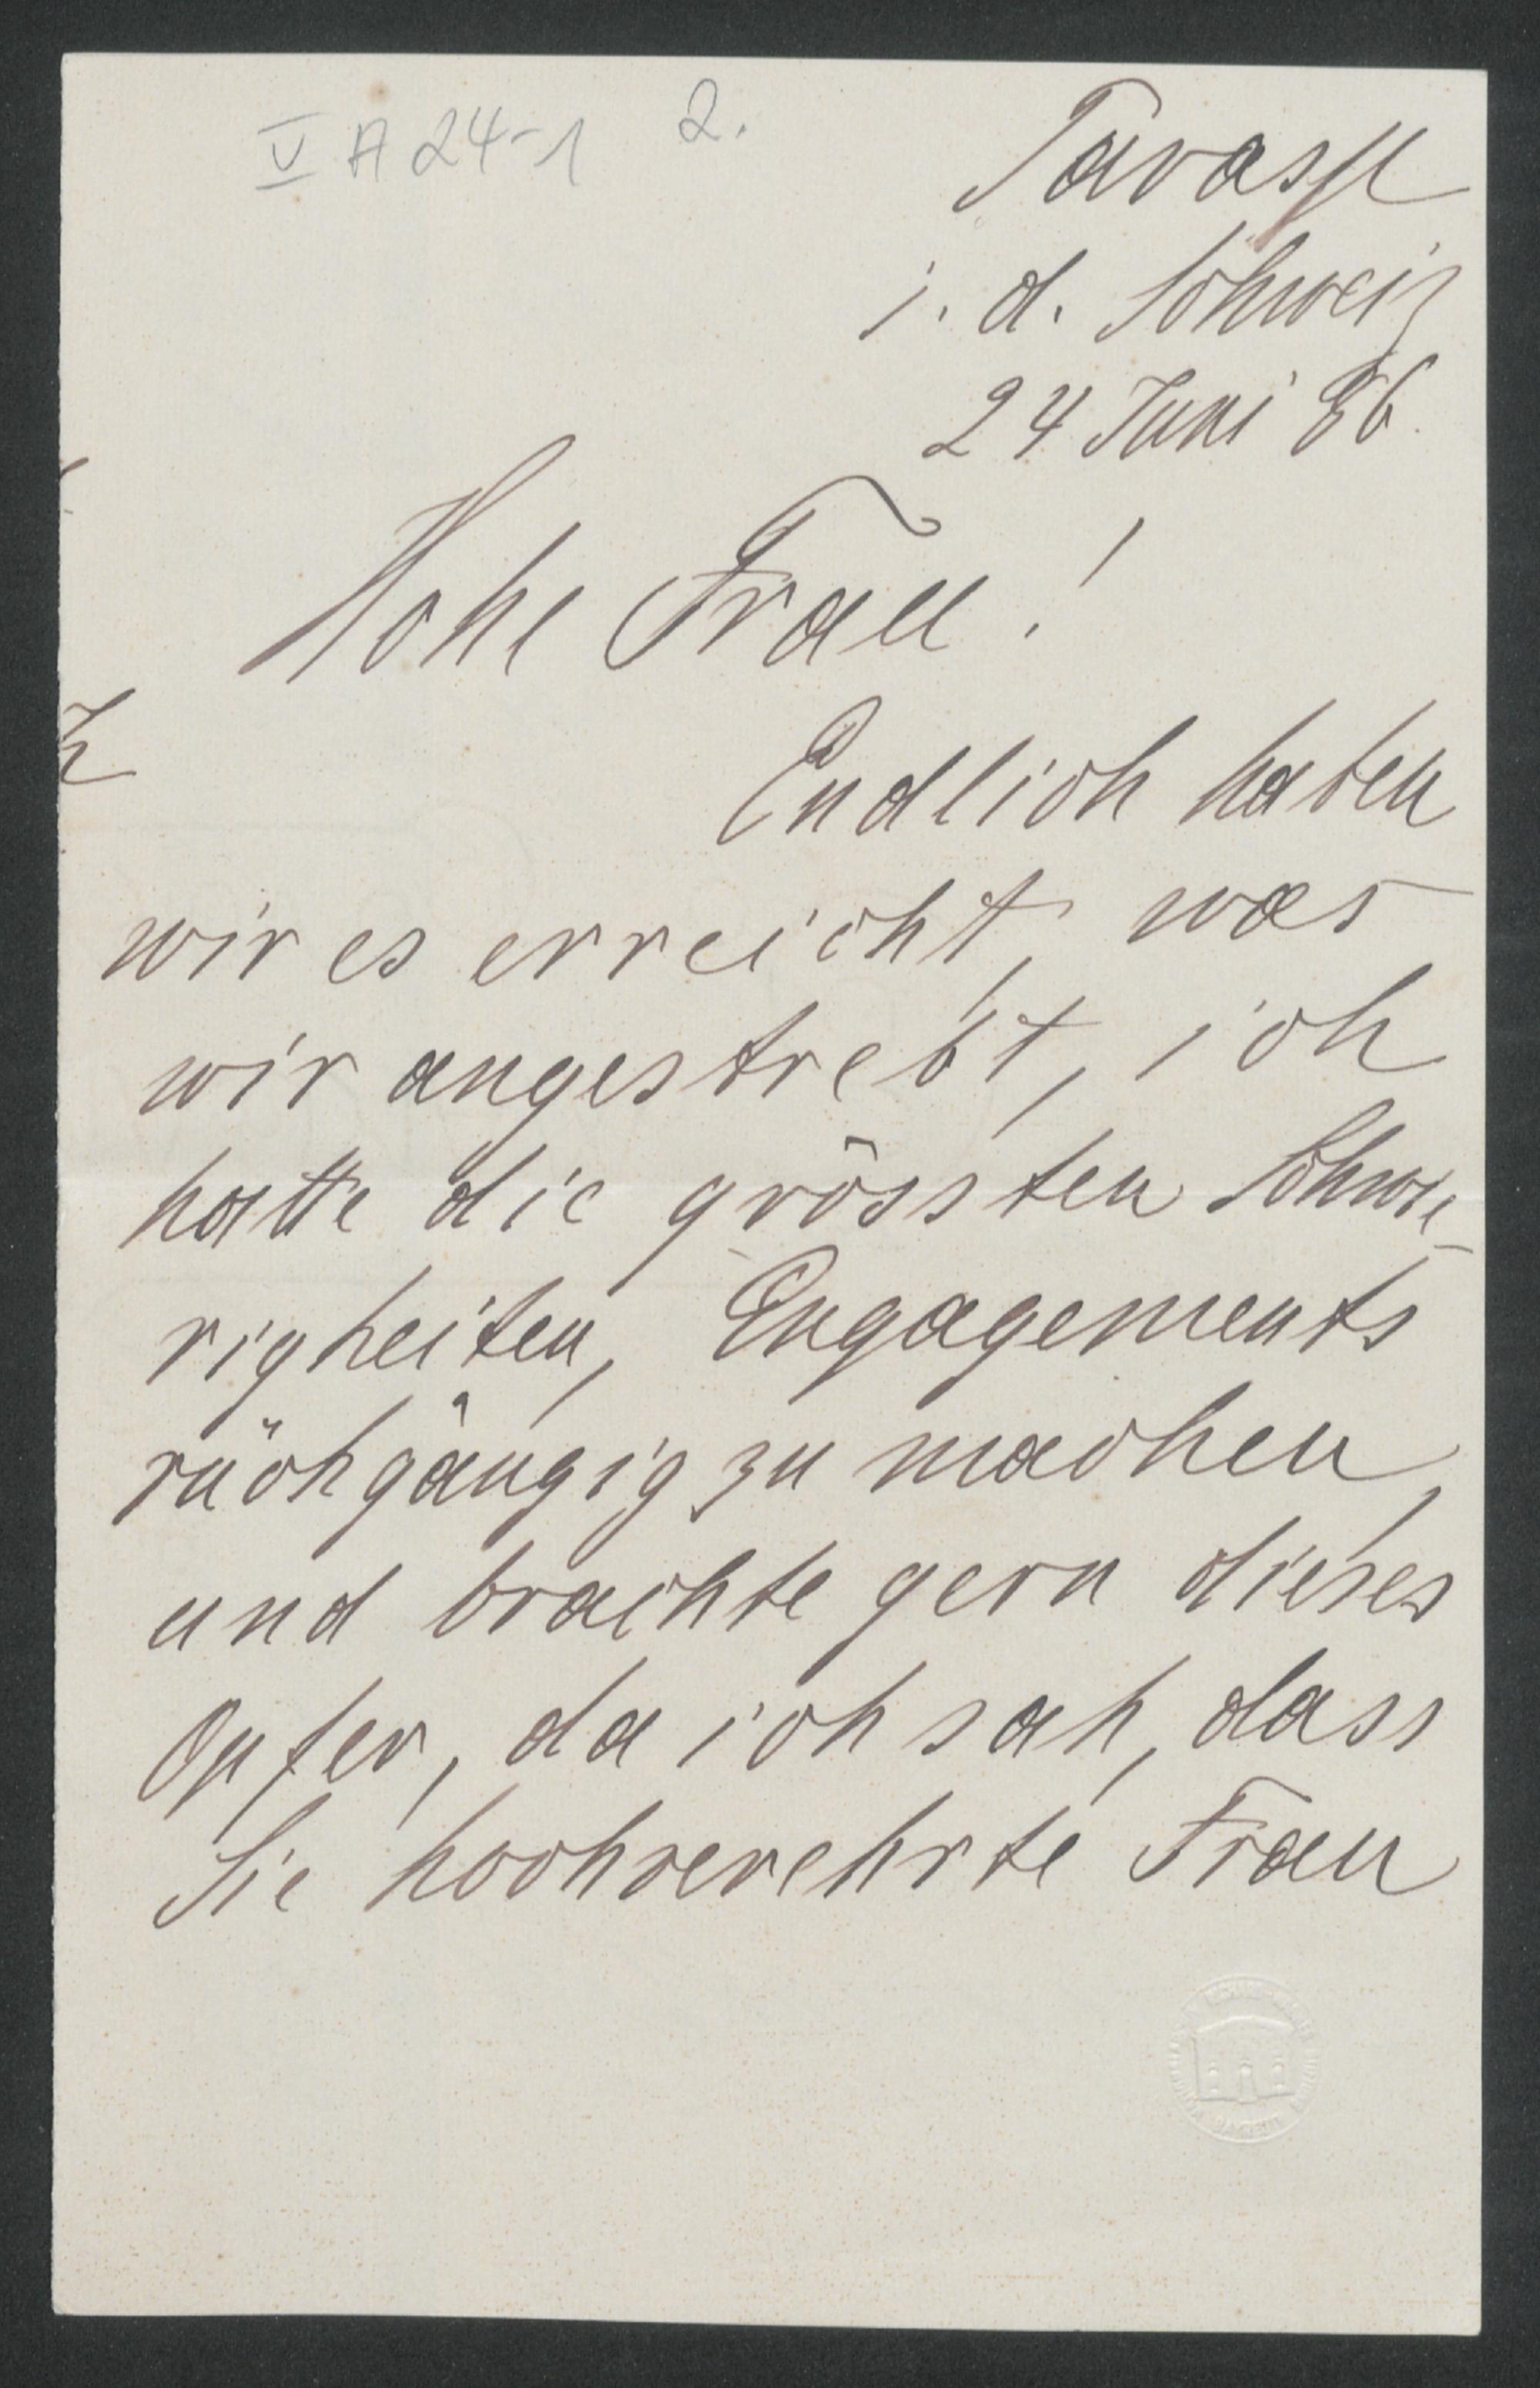 V A 24-1 2.
Tarasp
i. d. Schweiz
24 Juni 86.
Hohe Frau!
Endlich haben
wir es erreicht, was
wir angestrebt, ich
hatte die grössten Schwie-
rigkeiten, Engagements
rückgängig zu machen,
und brachte gern dieses
Opfer, da ich sah, dass
Sie hochverehrte Frau